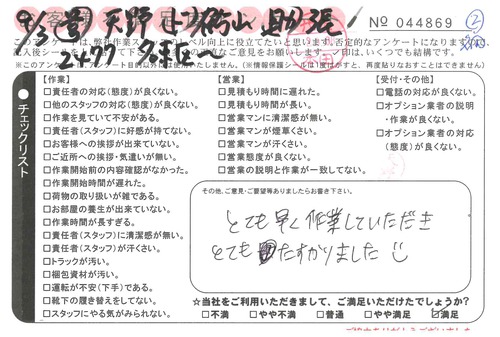 No 044869
このアンケートは、弊社作業スタッフのレベル向上に役立てたいと思います。否定的なアンケートになりますが、
※このアンケートはアンケート目的以外には使用いたしません。(※情報保護シールは1度はがすと、再度貼りなおすことはできません)
チェックリスト
【作業】
□責任者の対応(態度)が良くない。
□他のスタッフの対応(態度)が良くない。
□作業を見ていて不安がある。
□責任者(スタッフ)に好感が持てない。
□お客様への挨拶が出来ていない。
□ご近所への挨拶・気遣いが無い。
□作業開始前の内容確認がなかった。
□作業開始時間が遅れた。
□荷物の取り扱いが雑である。
□お部屋の養生が出来ていない。
□作業時間が長すぎる。
□責任者(スタッフ)に清潔感が無い。
□責任者(スタッフ)が汗くさい。
□トラックが汚い。
□梱包資材が汚い。
□運転が不安(下手)である。
□靴下の履き替えをしてない。
□スタッフにやる気がみられない。
【営業】
□見積もり時間に遅れた。
□見積もり時間が長い。
□営業マンに清潔感が無い。
□営業マンが煙草くさい。
□営業マンが汗くさい。
□営業態度が良くない。
□営業の説明と作業が一致してない。
【受付・その他】
□電話の対応が良くない。
□オプション業者の説明
・作業が良くない。
□オプション業者の対応
(態度)が良くない。
その他、ご意見・ご要望等ありましたらお書き下さい。
とても早く作業していただき
とてもたすかりました
☆当社をご利用いただきまして、ご満足いただけたでしょうか?
□不満 □やや不満 □普通 □やや満足 ☑満足